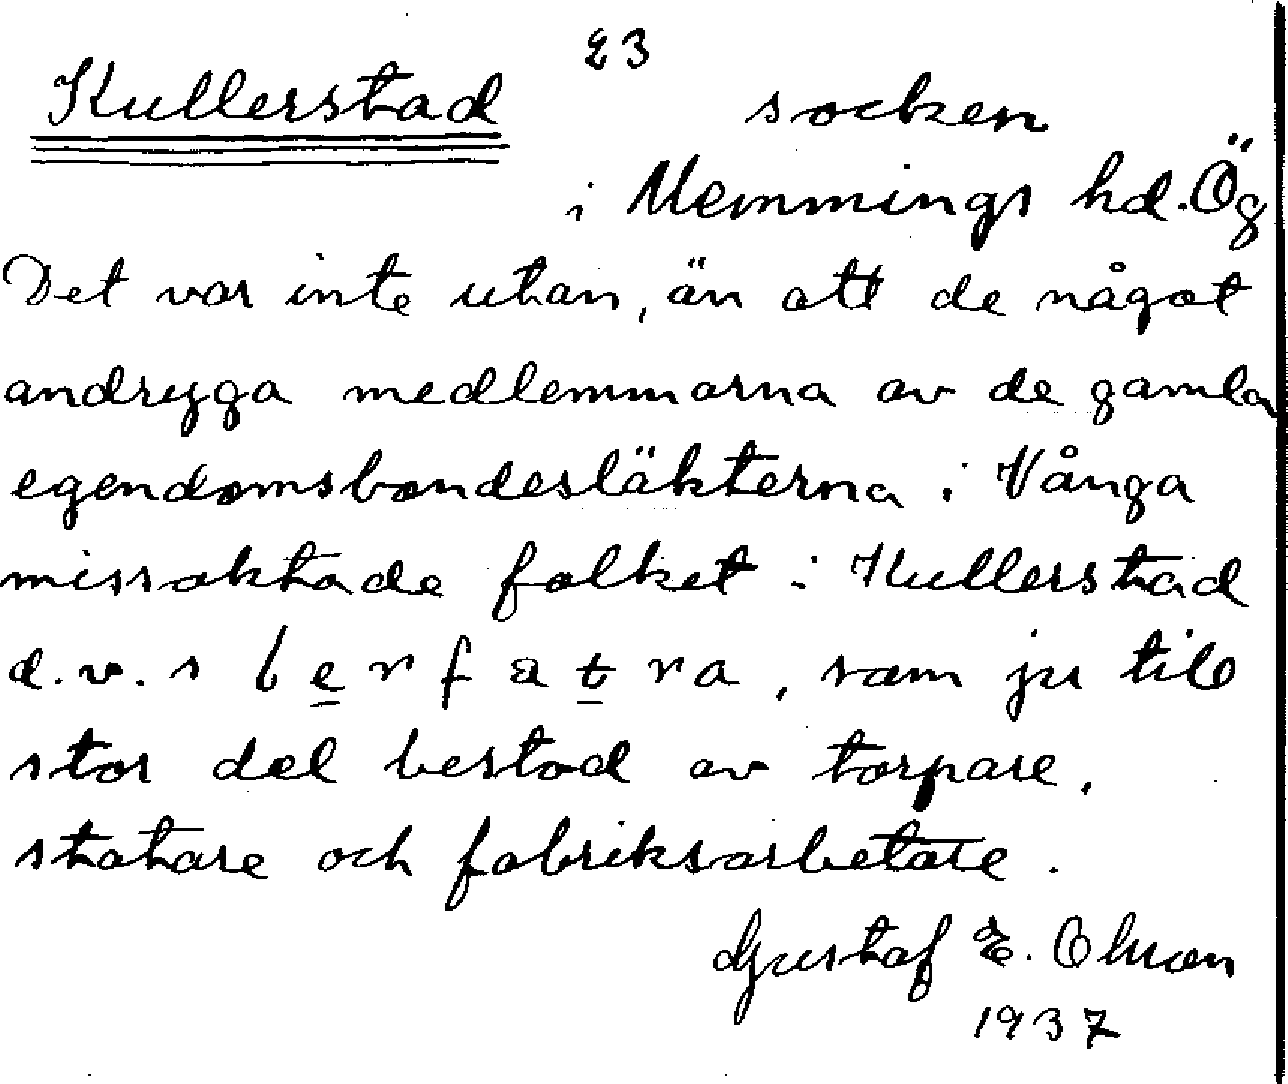 23
Kullerstad socken
i Memmings hd. Ög
Det var inte utan, än att de något
andryga medlemmarna av de gamla
egendomsbondesläkterna i Vånga
missaktade folket i Kullerstad
d.v.s b e r f a t r a, som ju till
stor del bestod av torpare,
statare och fabriksarbetare.
Gustaf E. Olsson
1937